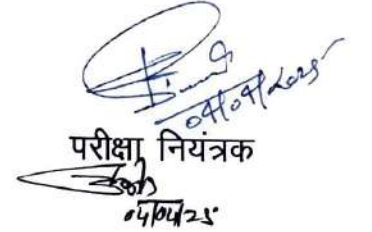 04/04/2025
परीक्षा नियंत्रक
04/04/25